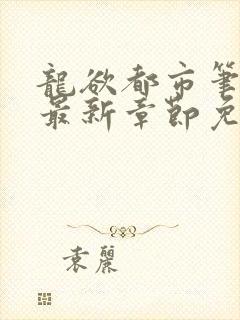 龍欲都市筆
最新章節免
袁麗